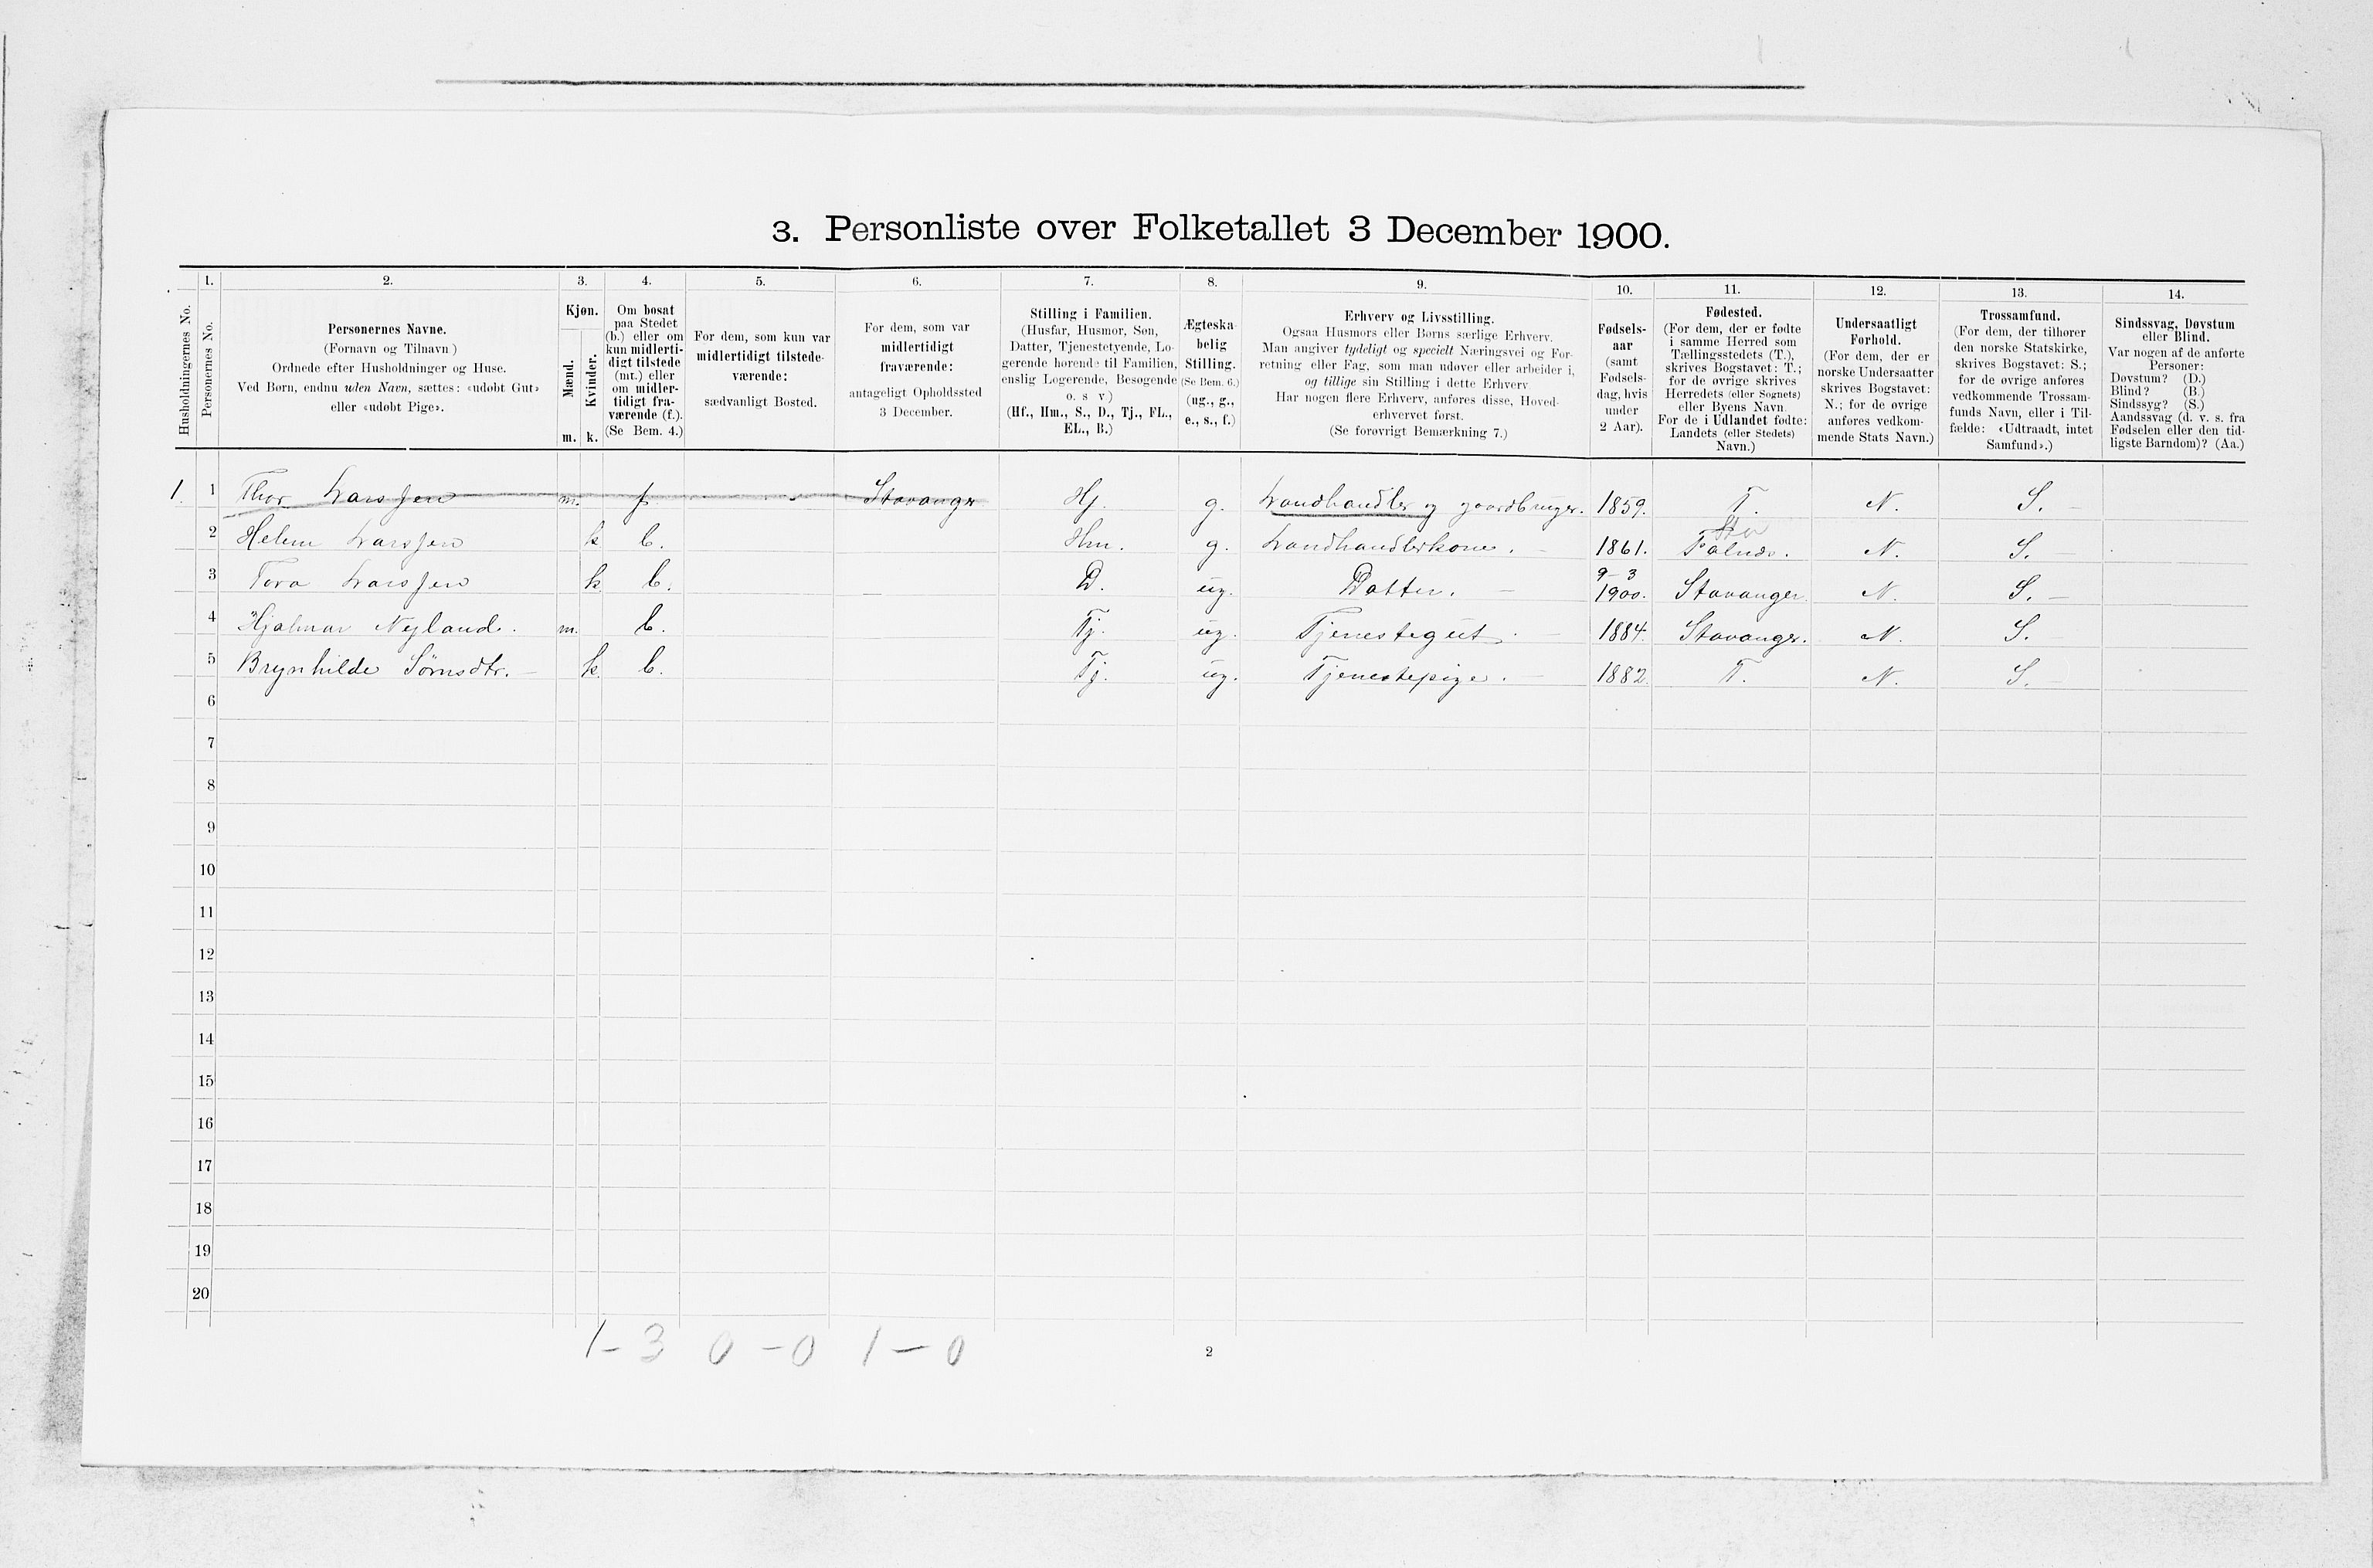 3. Personliste over Folketallet 3 December 1900.
Husholdningernes No.
1.
Personernes No.
2.
Personernes Navne.
(Fornavn og Tilnavn)
Ordnede efter Husholdninger og Huse.
Ved Børn, endnu uden Navn, sættes: «udøbt Gut»
eller «udøbt Pige».
3.
Kjøn.
Mænd.
Kvinder.
m. k.
4.
Om bosat
paa Stedet
(b.) eller om
kun midlerti-
digt tilstede
(mt.) eller
om midler-
tidigt fra-
værende (f.).
(Se Bem. 4.)
5.
For dem, som kun var
midlertidigt tilstede-
værende:
sædvanligt Bosted.
6.
For dem, som var
midlertidigt
fraværende:
antageligt Opholdssted
3 December.
7.
Stilling i Familien.
(Husfar, Husmor, Søn,
Datter, Tjenestetyende, Lo-
gerende hørende til Familien,
enslig Logerende, Besøgende
o. s v)
(Hf., Hm., S., D., Tj., FL.,
EL., B.)
8.
Ægteska-
belig
Stilling.
(Se Bem. 6.)
(ug., g.,
e., s., f.)
9.
Erhverv og Livsstilling.
Ogsaa Husmors eller Børns særlige Erhverv.
Man angiver tydeligt og specielt Næringsvei og For-
retning eller Fag, som man udøver eller arbeider i,
og tillige sin Stilling i dette Erhverv
Har nogen flere Erhverv, anføres disse, Hoved-
erhvervet først.
(Se forøvrigt Bemærkning 7.)
10.
Fødsels-
aar
(samt
Fødsels-
dag, hvis
under
2 Aar).
11.
Fødested.
(For dem, der er fødte
i samme Herred som
Tællingsstedets (T.),
skrives Bogstavet: T.;
for de øvrige skrives
Herredets (eller Sognets)
eller Byens Navn.
For de i Udlandet fødte:
Landets (eller Stedets)
Navn.)
12.
Undersaatligt
Forhold.
(For dem, der er
norske Undersaatter
skrives Bogstavet:
N.; for de øvrige
anføres vedkom-
mende Stats Navn.)
13.
Trossamfund.
(For dem, der tilhører
den norske Statskirke,
skrives Bogstavet: S.;
for de øvrige anføres
vedkommende Trossam-
funds Navn, eller i Til-
fælde: «Udtraadt, intet
Samfund».)
14.
Sindssvag, Døvstum
eller Blind.
Var nogen af de anførte
Personer:
Døvstum? (D.)
Blind? (B.)
Sindssyg? (S.)
Aandssvag (d. v. s. fra
Fødselen eller den tid-
ligste Barndom)? (Aa.)
1. 1 Thor Larssen m. f. Stavanger Hf. g. Landhandler og gaardbruger. 1859. T. N. S.
2 Helene Larssen k b. Hm. g. Landhandlerkone. 1861. N. S.
3 Tora Larssen k b. D. ug. Datter. 9-3 1900. Stavanger. N. S.
4 Hjalmar Nyland. m. b. Tj. ug. Tjenestegut. 1884. Stavanger. N. S.
5 Brynhilde Sörnsdtr. k b. Tj. ug. Tjenestepige. 1882. T. N. S.
6
7
8
9
10
11
12
13
14
15
16
17
18
19
20
1-3 0-0 1-0
2